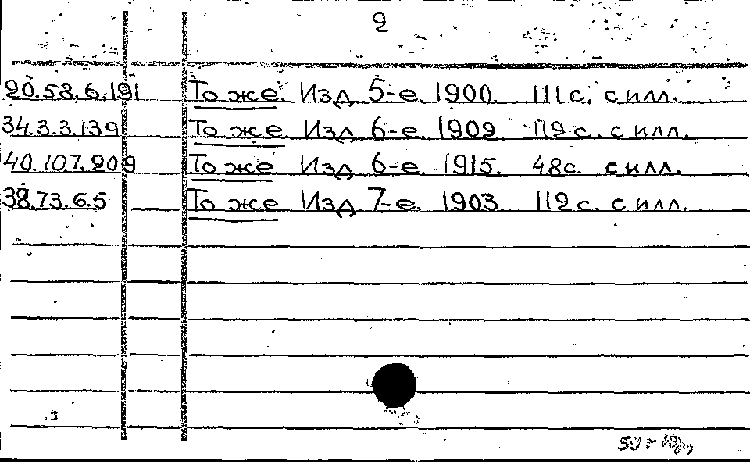 2
20.58.6.191 То же. Изд. 5-е. 1900. 111 с. с илл.
34.3.3.139 То же. Изд. 6-е. 1902. 112 с. с илл.
40.107.209 То же. Изд. 6-е. 1915. 48 с. с илл.
38.73.65 То же. Изд. 7-е. 1903. 112 с. с илл.